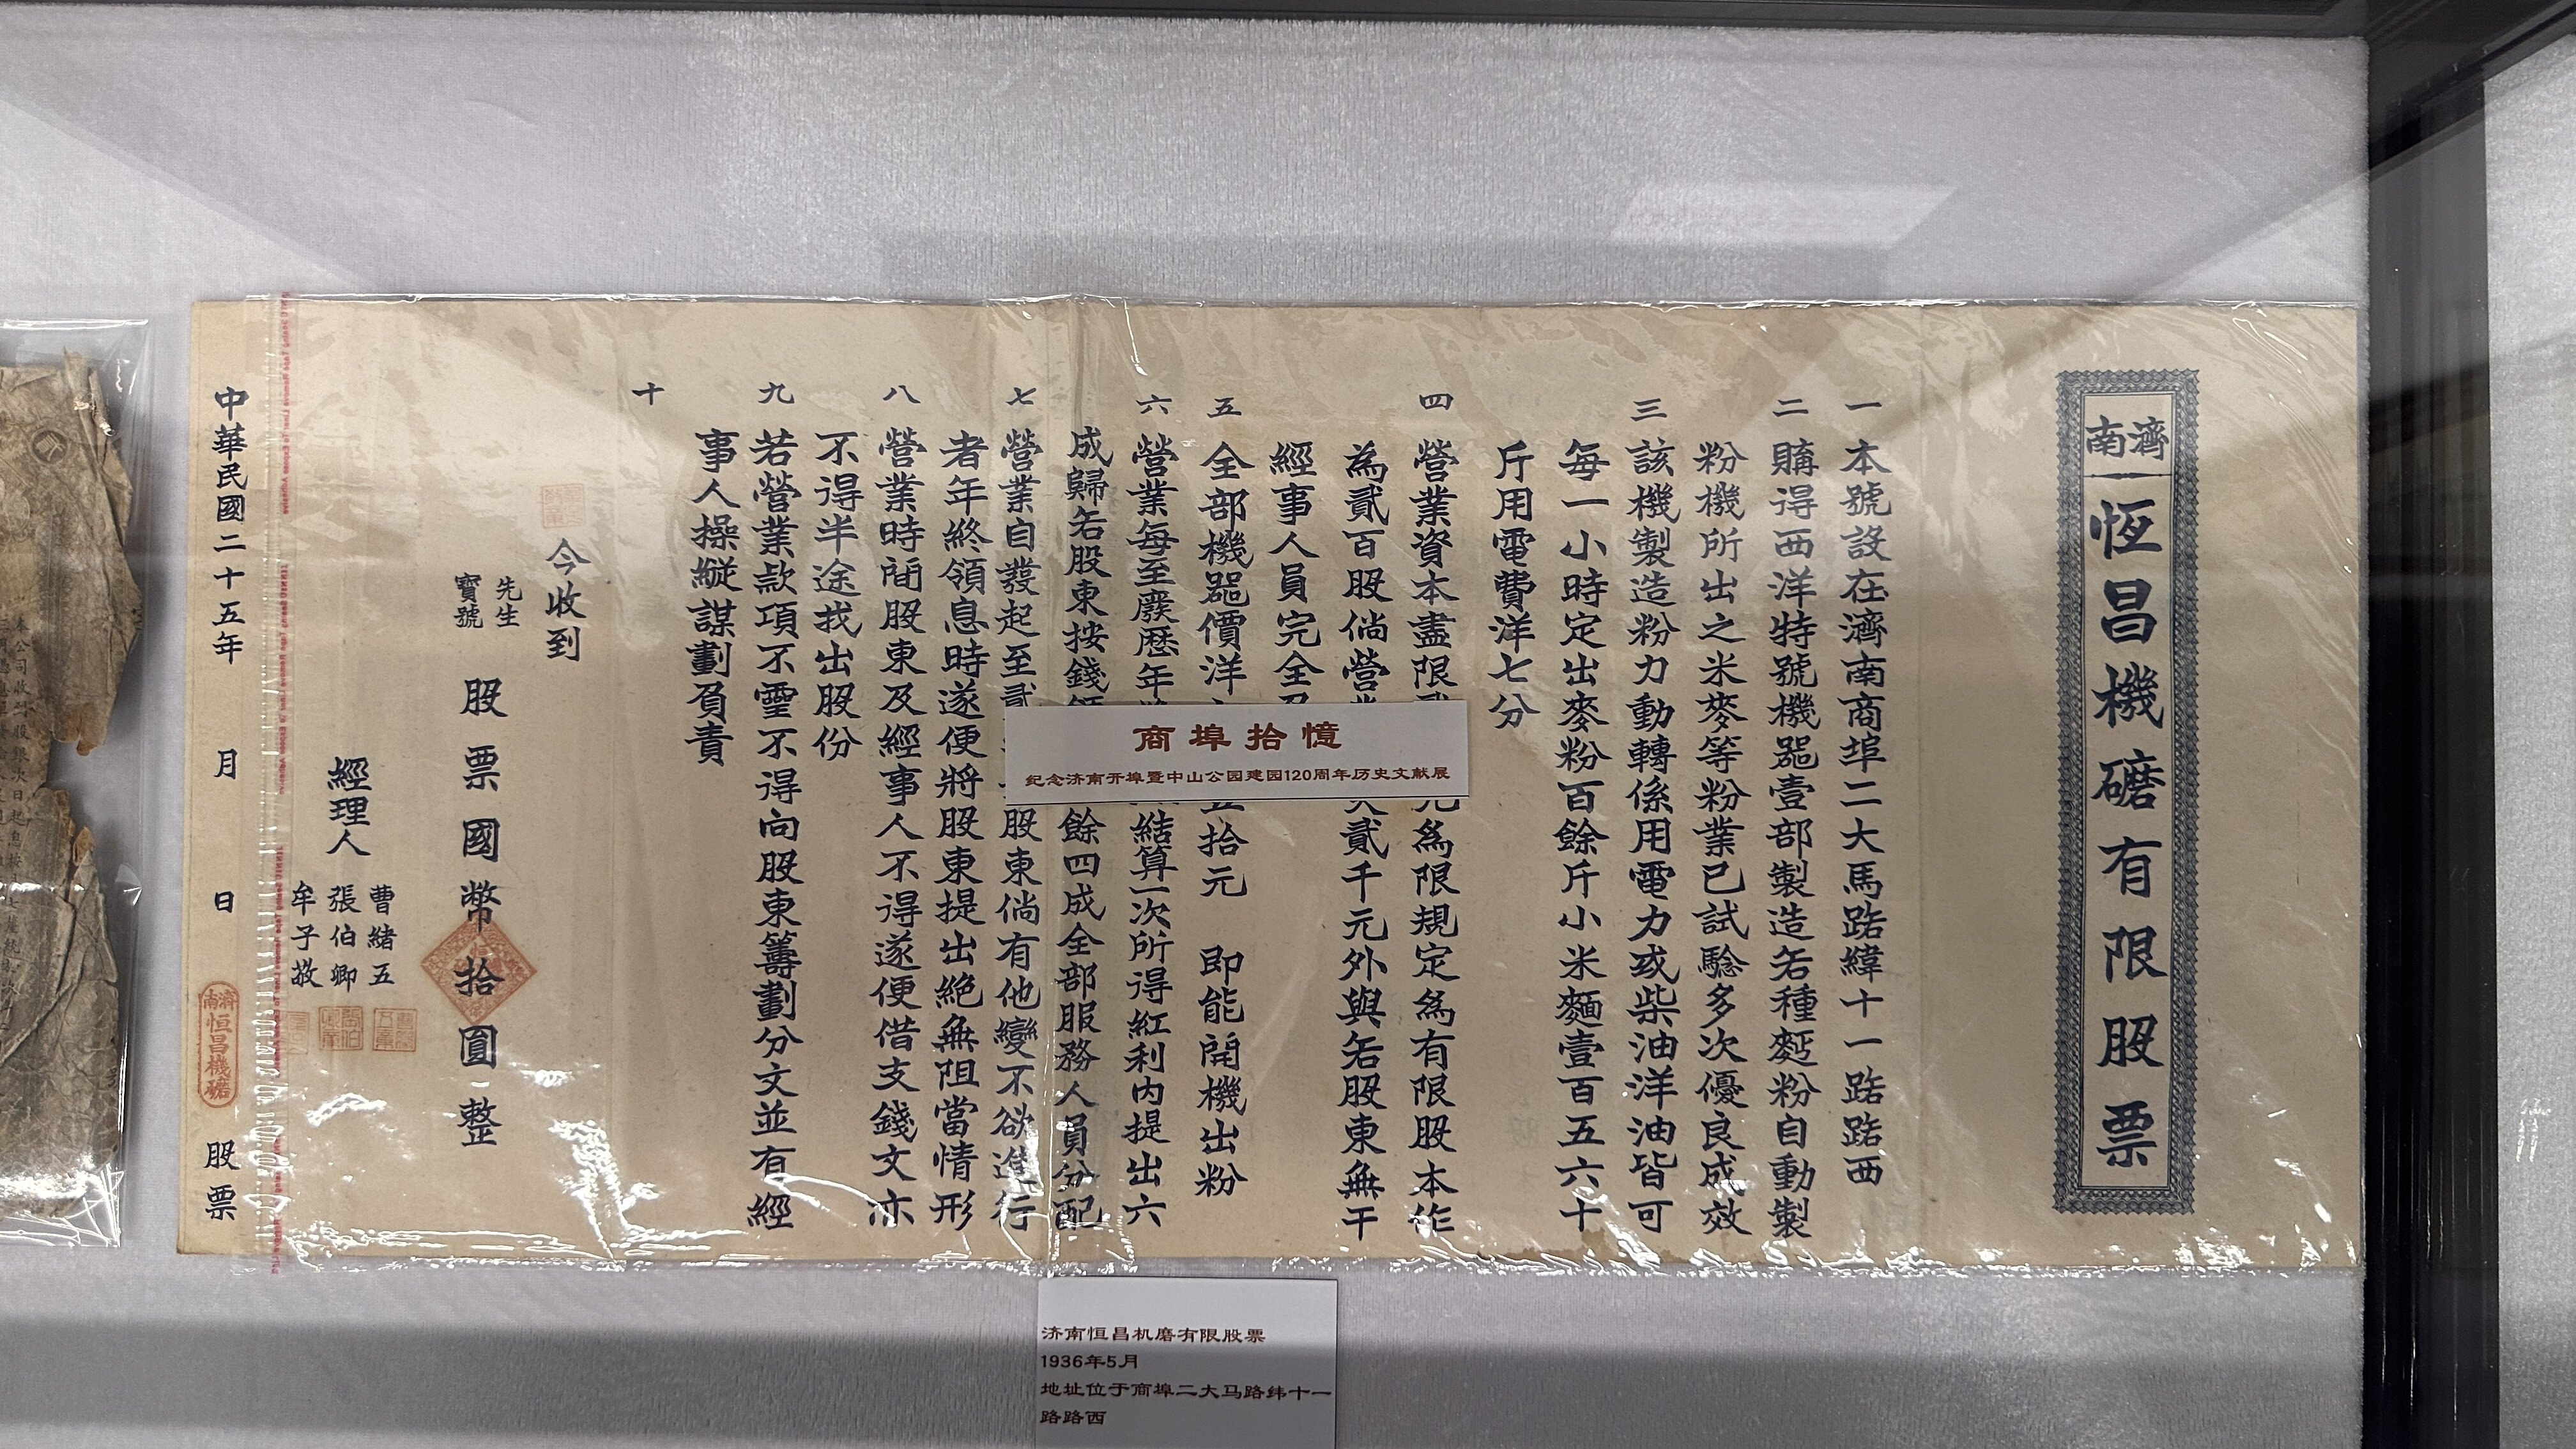 濟南
恆昌機磨有限股票
一 本號設在濟南商埠二大馬路緯十一路路西
二 購得西洋特號機器壹部製造各種麵粉自動製
粉機所出之米麥等粉業已試驗多次優良成效
三 該機製造粉力動轉係用電力或柴油洋油皆可
每一小時定出麥粉百餘斤小米麵壹百五六十
斤用電費洋七分
四 營業資本盡限 元為限規定為有限股本作
為貳百股倘營 貳千元外與各股東無干
經事人員完全
五 全部機器價洋 五拾元 即能開機出粉
六 營業每至廢歷年 結算一次所得紅利內提出六
成歸各股東按錢 餘四成全部服務人員分配
七 營業自發起至貳 股東倘有他變不欲進行
者年終領息時遂便將股東提出絕無阻當情形
八 營業時間股東及經事人不得遂便借支錢文亦
不得半途找出股份
九 若營業款項不靈不得向股東籌劃分文並有經
事人操縱謀劃負責
十
今收到
先生
寶號
股票國幣拾圓整
經理人
曹緒五
張伯卿
牟子敬
中華民國二十五年 月 日 股票
濟南
恆昌機磨
商埠拾憶
纪念济南开埠暨中山公园建园120周年历史文献展
济南恒昌机磨有限股票
1936年5月
地址位于商埠二大马路纬十一
路路西